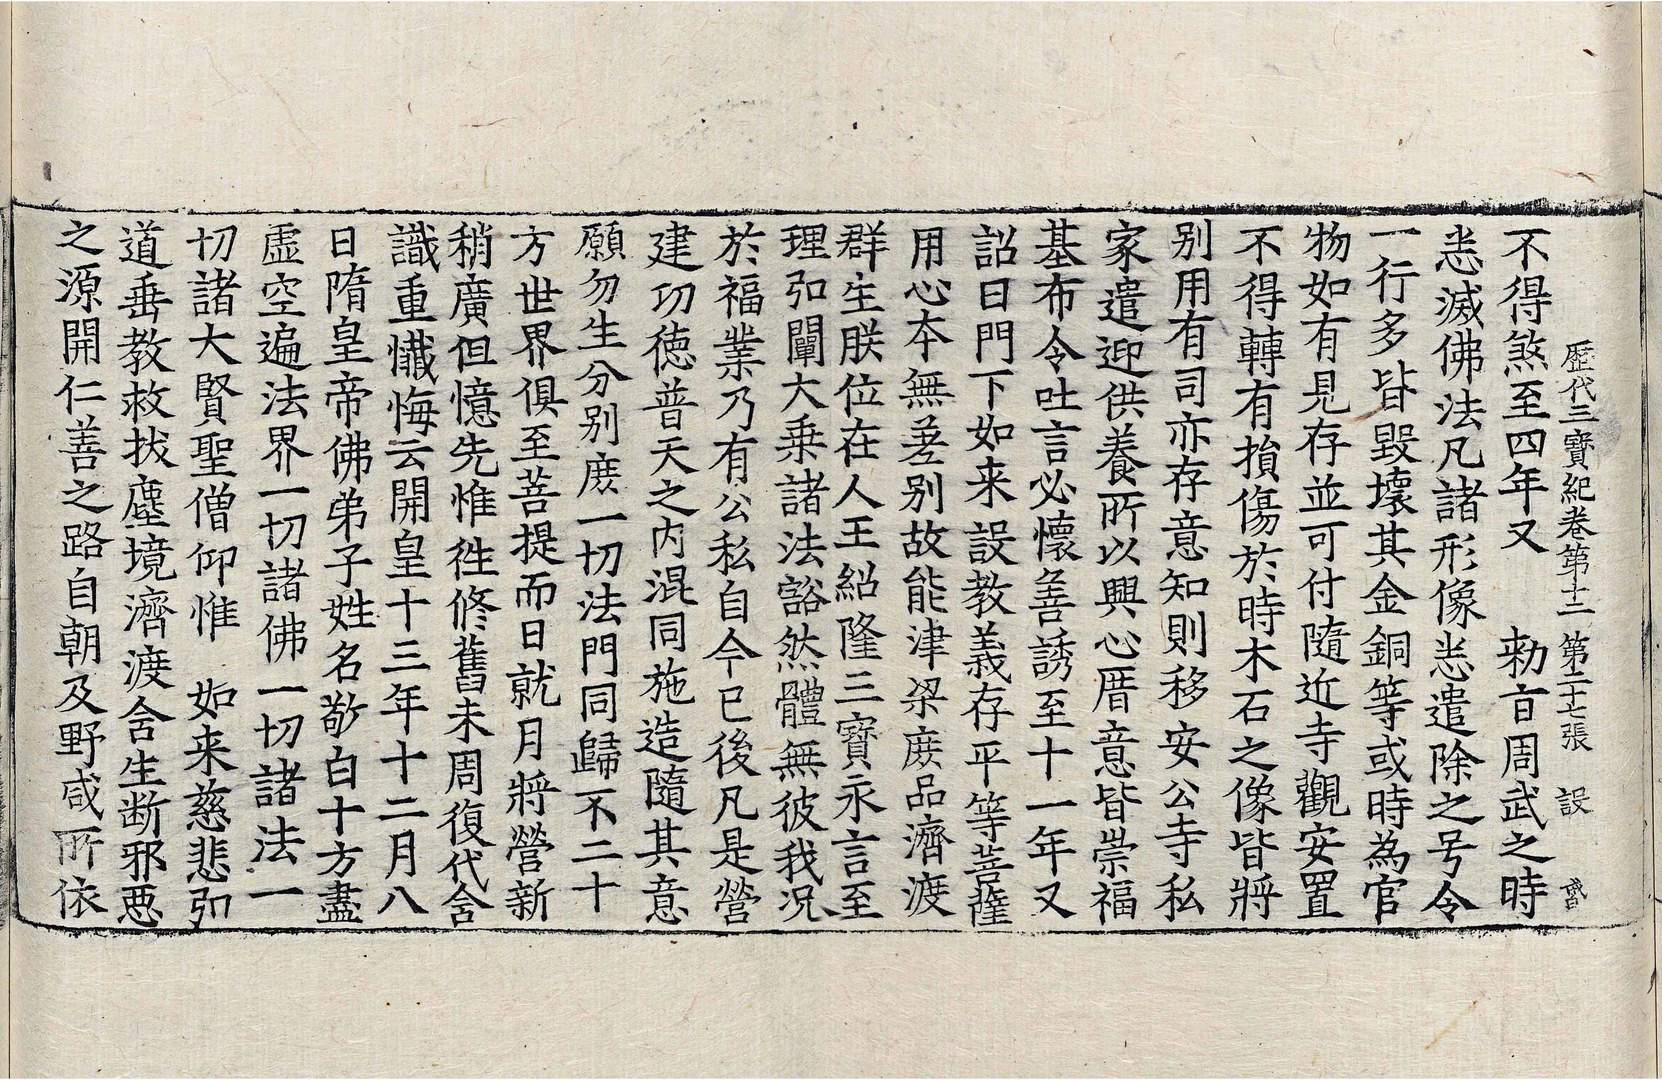 歷代三寶紀卷第十二 第二十七張 設
不得煞至四年又 勑旨周武之時
恙滅佛法凡諸形像恙遣除之号令
一行多皆毀壞其金銅等或時為官
物如有見存並可付隨近寺觀安置
不得轉有損傷於時木石之像皆將
別用有司亦存意知則移安公寺私
家遣迎供養所以興心厝意皆崇福
基布令吐言必懷善誘至十一年又
詔曰門下如来設教義存平等菩薩
用心本無差別故能津梁庶品濟渡
群生朕位在人王紹隆三寶永言至
理弘闡大乗諸法豁然體無彼我况
於福業乃有公私自今已後凡是營
建功徳普天之内混同施造隨其意
願勿生分別庶一切法門同歸不二十
方世界俱至菩提而日就月將營新
稍廣但憶先惟徃修舊未周復代舍
識重懺悔云開皇十三年十二月八
日隋皇帝佛弟子姓名敬白十方盡
虛空遍法界一切諸佛一切諸法一
切諸大賢聖僧仰惟 如来慈悲弘
道垂教救拔塵境濟渡含生断邪惡
之源開仁善之路自朝及野咸所依